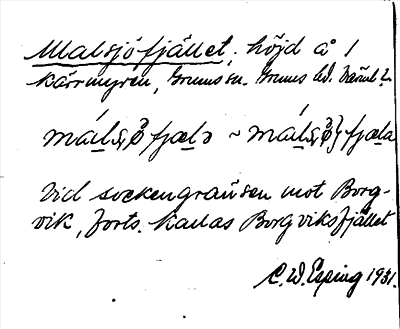 Malsjöfjället, höjd å 1
Kärrmyren, Grums sn. Grums hd. Värml.
fjælə ~ fjæla
Vid sockengränsen mot Borg-
vik, forts. kallas Borgviksfjället
C. W. Esping 1931.